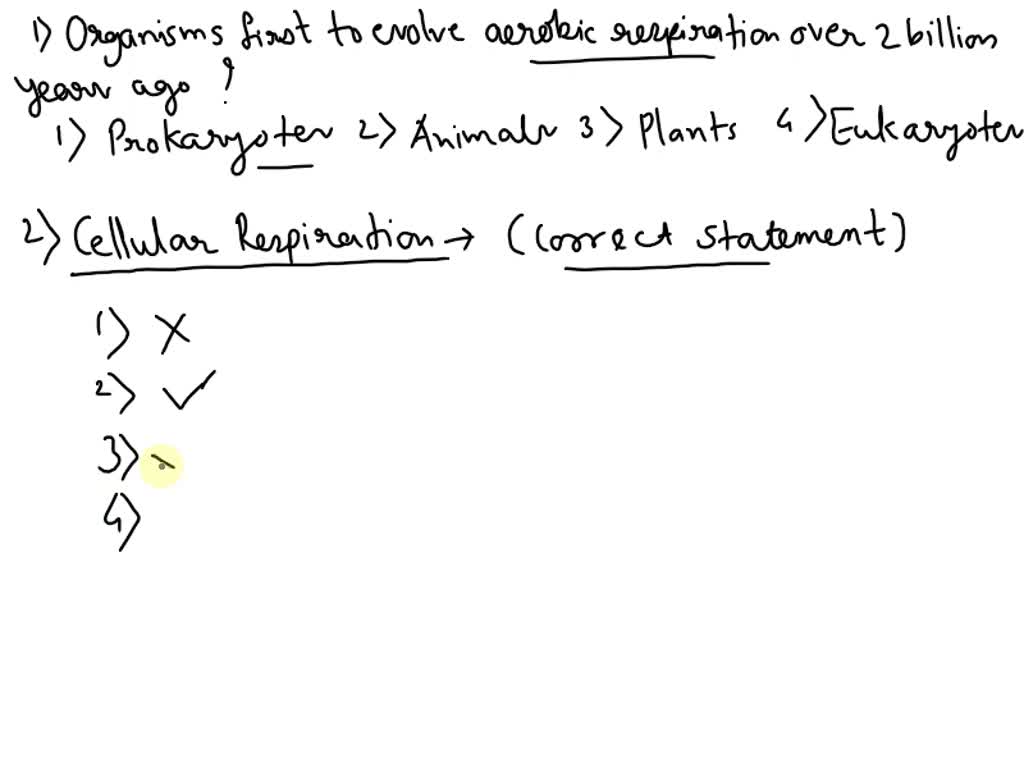 1) Organisms first to evolve aerobic respiration over 2 billion
years ago ?
1) Prokaryotes 2) Animals 3) Plants 4) Eukaryotes
2) Cellular Respiration → (Correct statement)
1) X
2) ✓
3)
4)